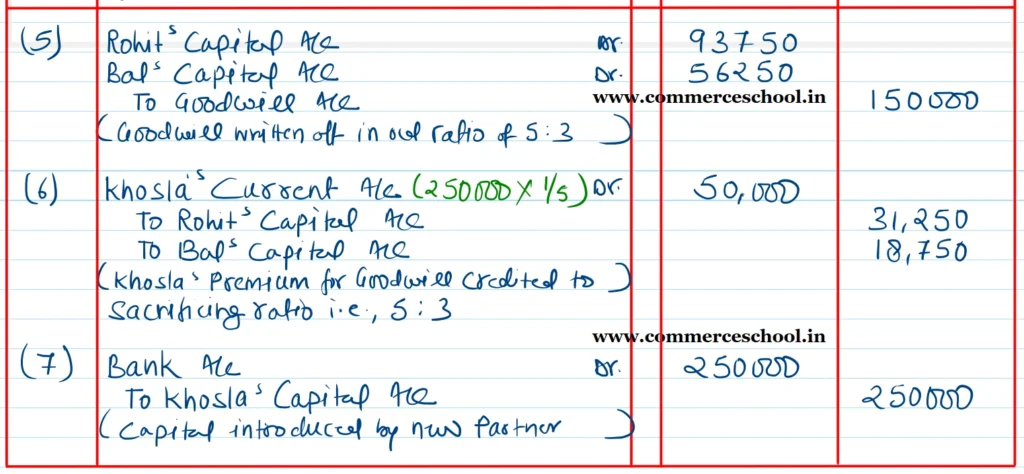 (5) Rohit's Capital A/c Dr. 93750
Bal's Capital A/c Dr. 56250
To Goodwill A/c 150000
www.commerceschool.in
(Goodwill written off in old ratio of 5:3)
(6) Khosla's Current A/c (250000 × 1/5) Dr. 50,000
To Rohit's Capital A/c 31,250
To Bal's Capital A/c 18,750
(Khosla's Premium for Goodwill Credited to
Sacrificing ratio i.e., 5:3
www.commerceschool.in
(7) Bank A/c Dr. 250000
To Khosla's Capital A/c 250000
(Capital introduced by new Partner)